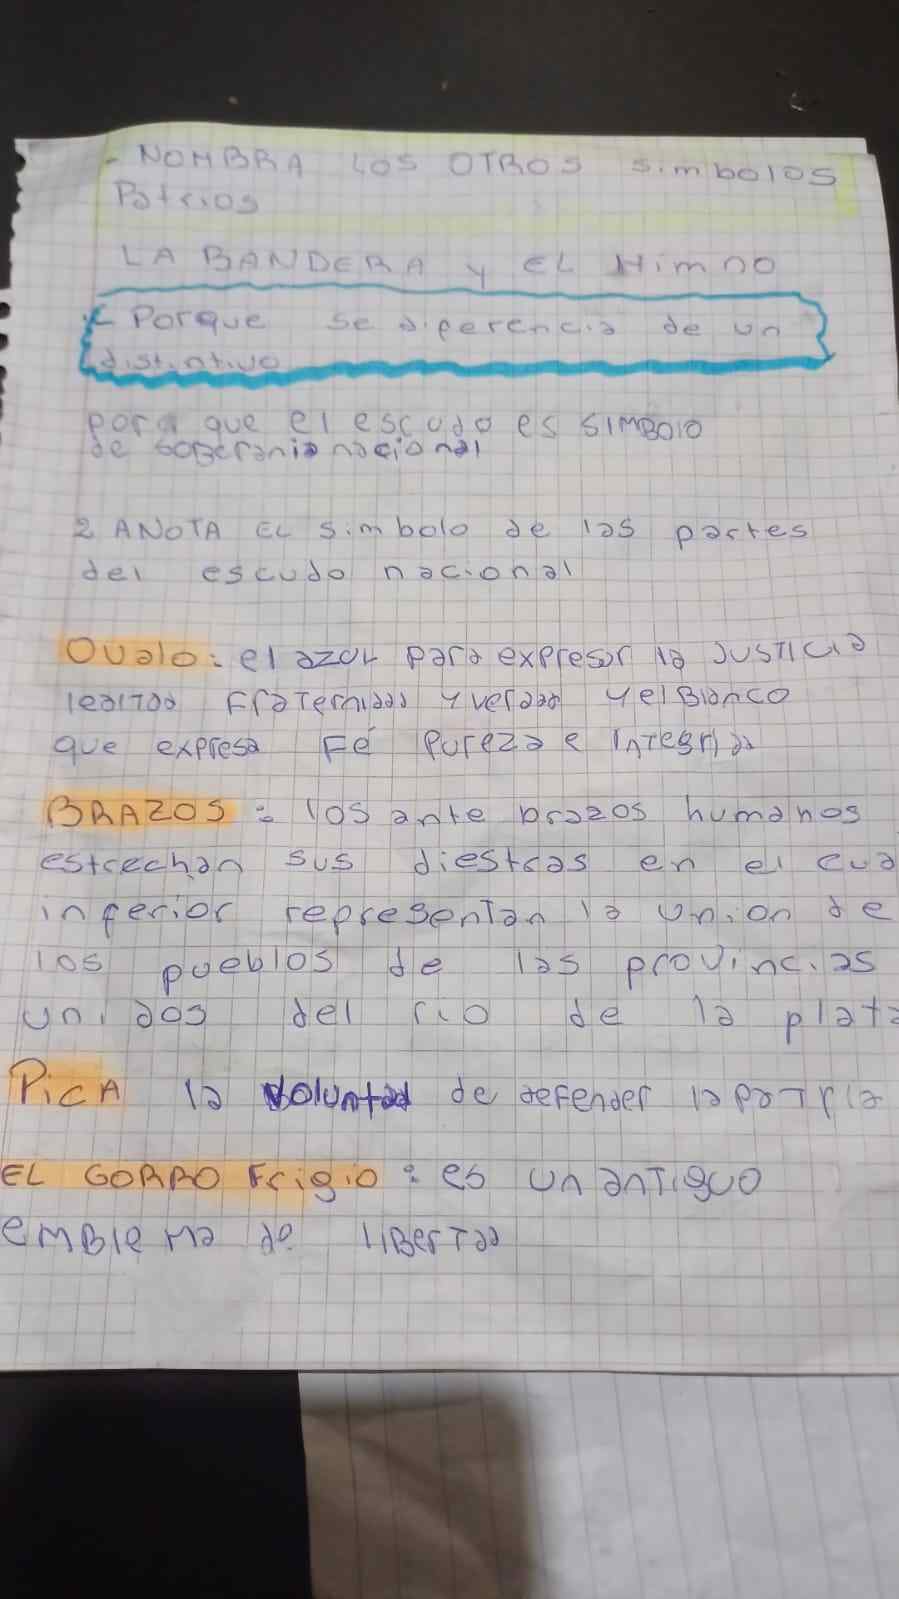 - NOMBRA LOS OTROS simbolos
Patrios
LA BANDERA y EL Himno
- Porque se diferencia de un
distintivo
para que el escudo es SIMBOLO
de soberania nacional
2 ANOTA EL simbolo de las partes
del escudo nacional
Ovalo: el azul para expresar la JUSTICIA
lealtad Fraternidad y verdad y el Blanco
que expresa Fé Pureza e Integrida
BRAZOS: los ante brazos humanos
estrechan sus diestras en el cua
inferior representan la union de
los pueblos de las provincias
unidos del rio de la plata
PICA la voluntad de defender la patria
EL GORRO Frigio: es un antiguo
emblema de libertad